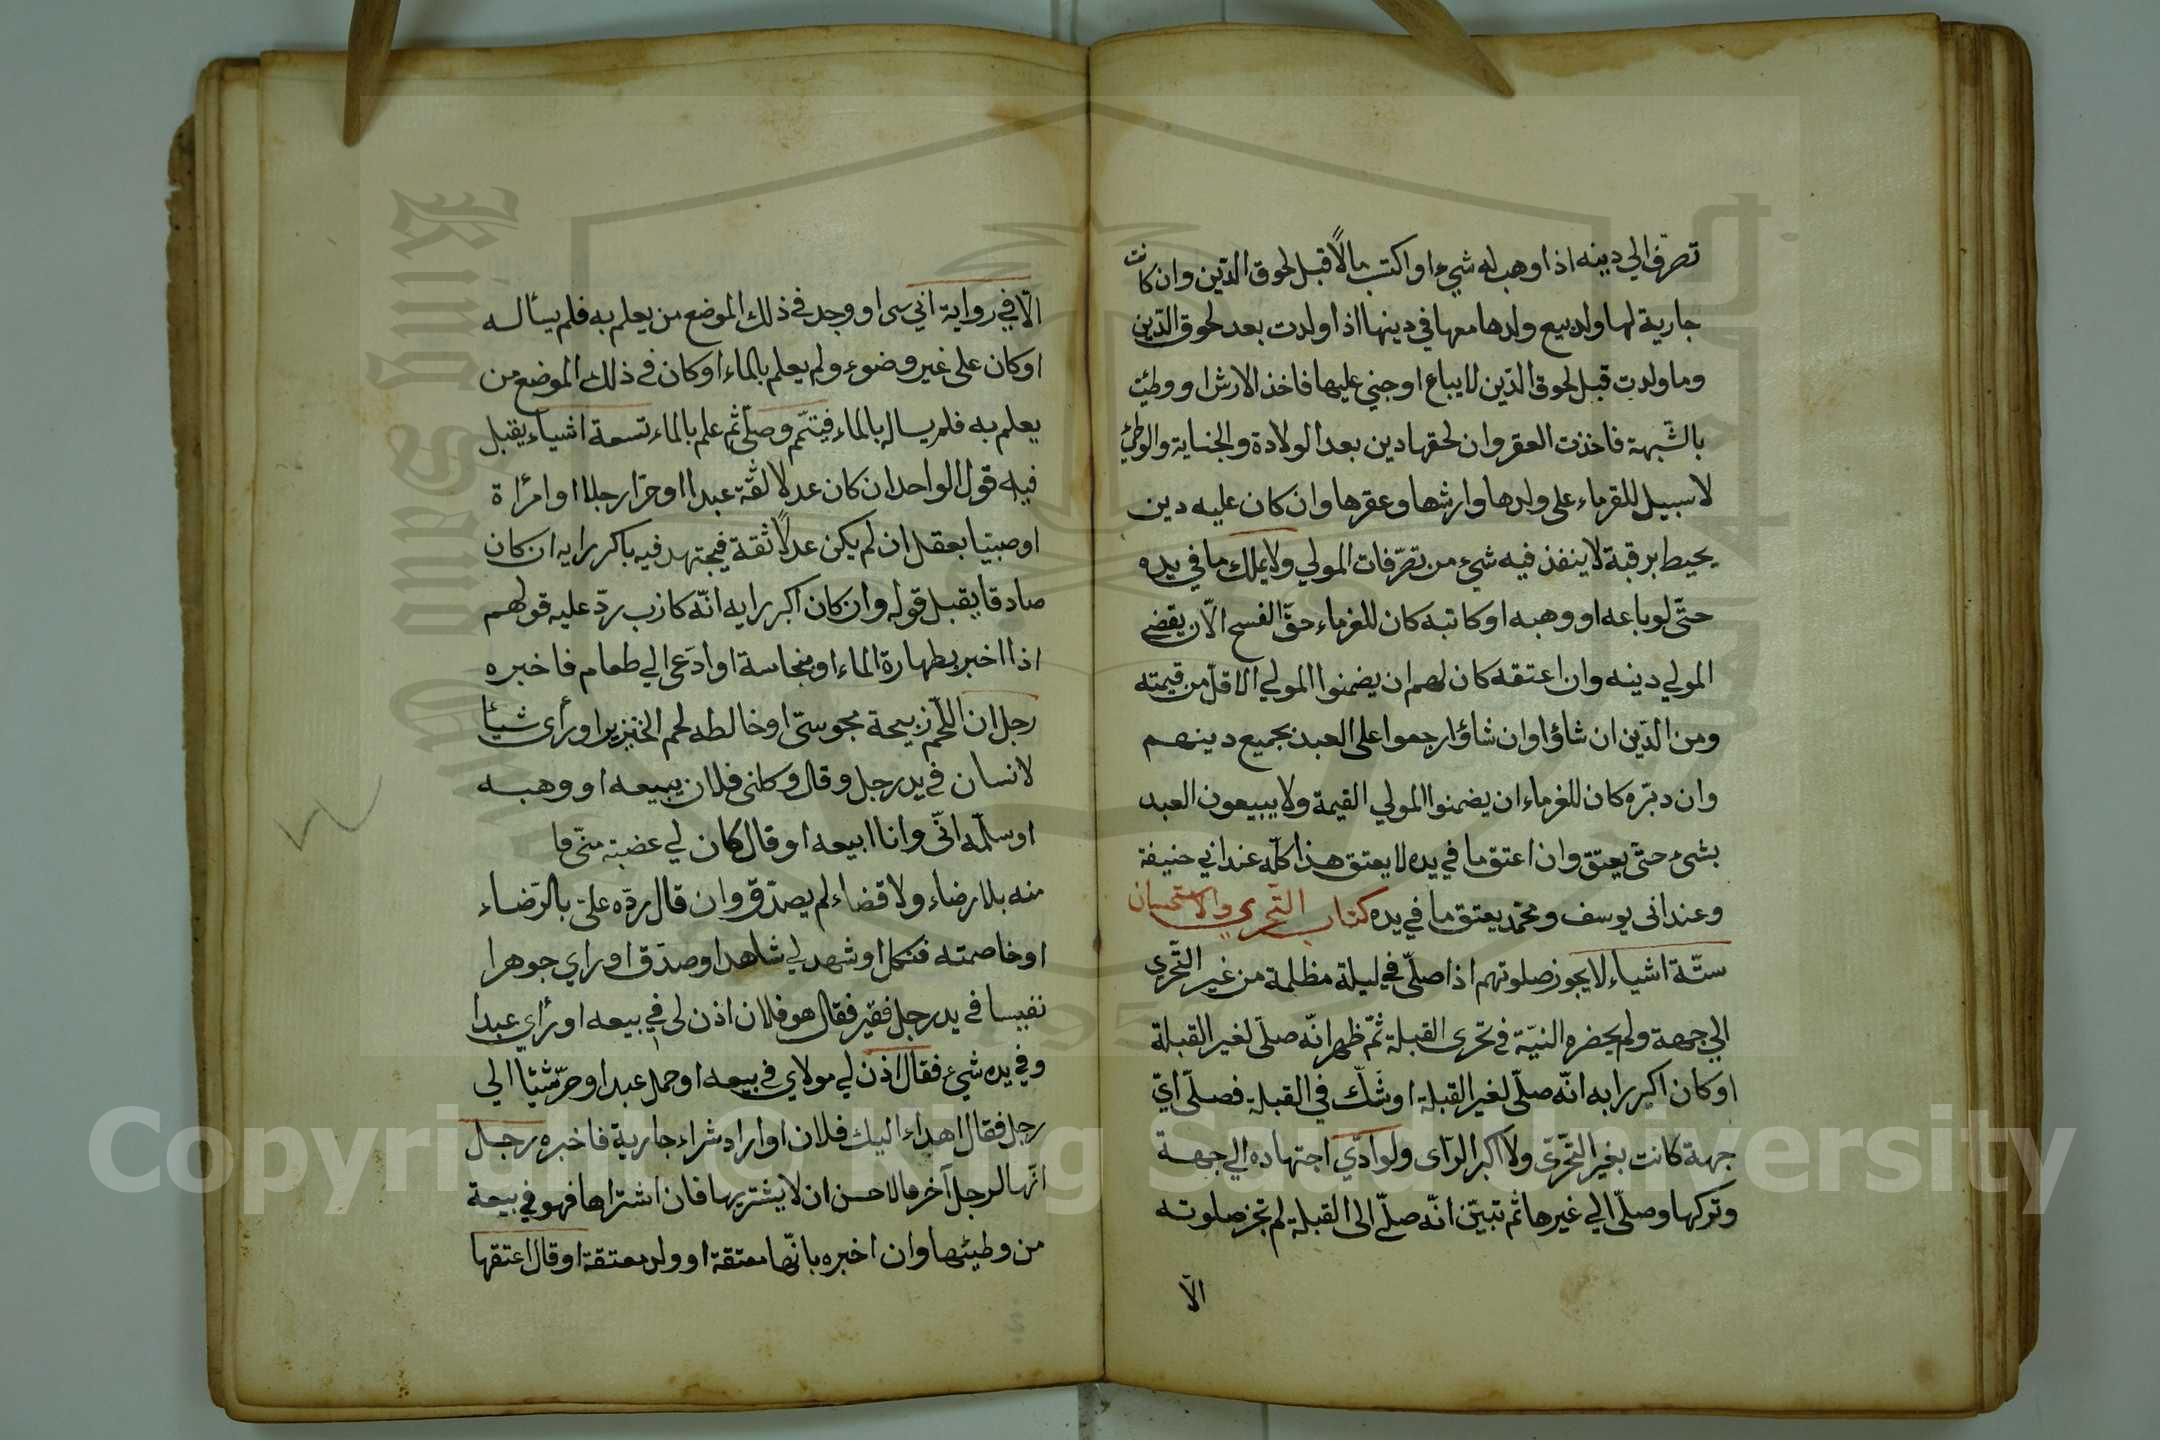 تصرّف الي دينه اذا وهب له شيء او اكتسب مالاً قبل لحوق الدّين وان كانت
جارية لها ولد بيع ولدها معها في دينها اذا ولدت بعد لحوق الدّين
وما ولدت قبل لحوق الدّين لا يباع او جني عليها فاخذ الارش او وطئت
بالشّبهة فاخذت العقر وان لحقها دين بعد الولادة والجناية والوطئ
لا سبيل للغرماء علي ولدها وارشها وعقرها وان كان عليه دين
يحيط برقبة لا ينفذ فيه شيء من تصرّفات المولي ولا يملك ما في يده
حتّي لو باعه او وهبه او كاتبه كان للغرماء حقّ الفسخ الّا ان يقضي
المولي دينه وان اعتقه كان لهم ان يضمنوا المولي الاقلّ من قيمته
ومن الدّين ان شاؤا وان شاؤا رجعوا علي العبد بجميع دينهم
وان دبّره كان للغرماء ان يضمنوا المولي القيمة ولا يبيعون العبد
بشيء حتّي يعتق وان اعتق ما في يده لا يعتق هذا كلّه عند ابي حنيفة
وعند ابي يوسف ومحمّد يعتق ما في يده كتاب التّحري والاستحسان
ستّة اشياء لا يجوز صلوتهم اذا صلّي في ليلة مظلمة من غير التّحري
الي جهة ولم يحضره النيّة في تحرى القبلة ثمّ ظهر انّه صلّي لغير القبلة
او كان اكبر رايه انّه صلّي لغير القبلة او شكّ في القبلة فصلّي ايّ
جهة كانت بغير التّحرّي ولا اكبر الرّاى ولو ادّي اجتهاده الي جهة
وتركها وصلّي الي غيرها ثم تبيّن انّه صلّي الى القبلة لم تجز صلوته
الّا
الّا في رواية ابي او وجد في ذلك الموضع من يعلم به فلم يسأله
او كان علي غير وضوء ولم يعلم بالماء او كان في ذلك الموضع من
يعلم به فلم يساله بالماء فيتمّم وصلّي ثم علم بالماء تسعة اشياء يقبل
فيه قول الواحد ان كان عدلا ثقة عبدا او حرّا رجلا او امرأة
او صبيّا يعقل ان لم يكن عدلاً ثقة فيجتهد فيه باكبر رايه ان كان
صادقا يقبل قوله وان كان اكبر رايه انّه كاذب ردّ عليه قولهم
اذا اخبر بطهارة الماء او بنجاسة او ادّعي الي طعام فاخبره
رجل ان اللّحم ذبيحة مجوسّي او خالطه لحم الخنزير او رأى شيأ
لانسان في يد رجل وقال وكلني فلان ببيعه او وهبه
او سلّمه انّي وانا ابيعه او قال كان لي غصبته منّي
منه بلا رضاء ولا قضاء لم يصدّق وان قال ردّه عليّ بالرّضاء
او خاصمته فنكل او شهد لي شاهد او صدّق او راي جوهرا
نفيسا في يد رجل فقير فقال هو فلان اذن لى في بيعه او رأي عبدا
وفي يده شيء فقال اذن لي مولاي في بيعه او حمل عبد او حرّ شيئا الي
رجل فقال اهداء اليك فلان او اراد شراء جارية فاخبره رجل
انّها لرجل آخر فالاحسن ان لا يشتريها فان اشتراها فهو في بيعة
من وطيئها وان اخبره بانّها معتقة او ولد معتقة او قال اعتقها
Copyright © King Saud University